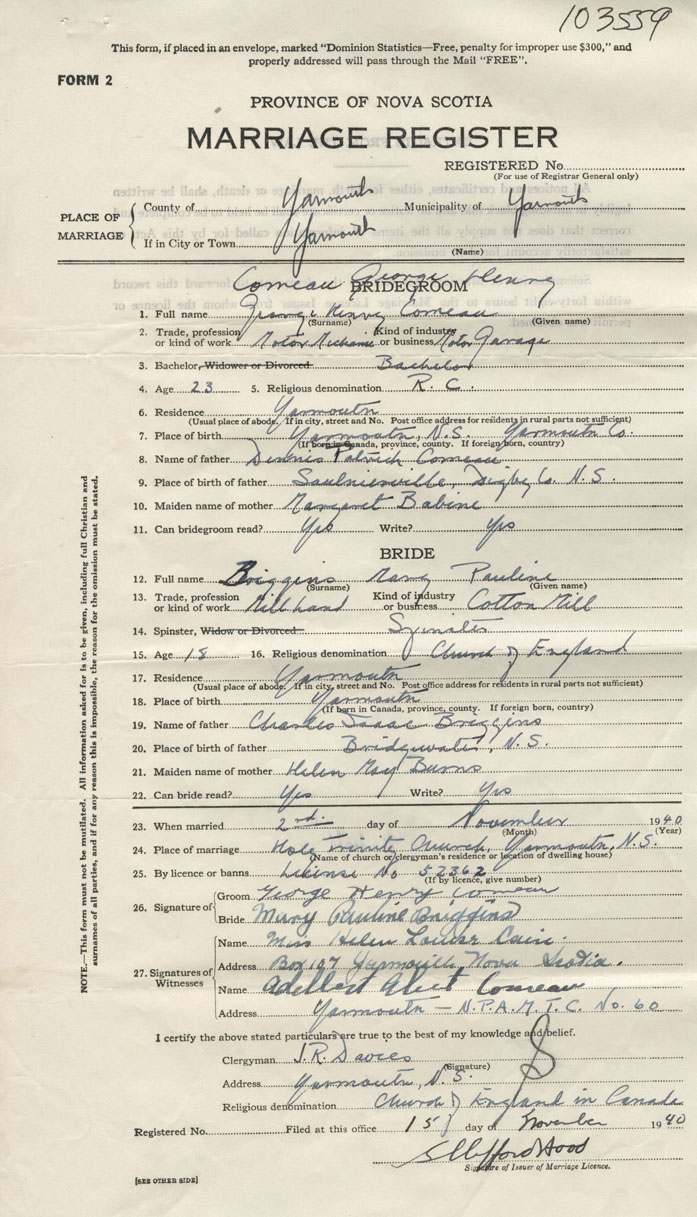 103559
This form, if placed in an envelope, marked "Dominion Statistics—Free, penalty for improper use $300," and
properly addressed will pass through the Mail "FREE".
FORM 2
PROVINCE OF NOVA SCOTIA
MARRIAGE REGISTER
REGISTERED No.
(For use of Registrar General only)
PLACE OF MARRIAGE
County of Yarmouth Municipality of Yarmouth
If in City or Town Yarmouth
(Name)
Comeau George Henry
BRIDEGROOM
1. Full name George Henry Comeau
(Surname) (Given name)
2. Trade, profession or kind of work Motor Mechanic Kind of industry or business Motor Garage
3. Bachelor, Widower or Divorced Bachelor
4. Age 23 5. Religious denomination R. C.
6. Residence Yarmouth
(Usual place of abode. If in city, street and No. Post office address for residents in rural parts not sufficient)
7. Place of birth Yarmouth, N.S. Yarmouth Co.
(If born in Canada, province, county. If foreign born, country)
8. Name of father Dennis Patrick Comeau
9. Place of birth of father Saulnierville, Digby Co. N.S.
10. Maiden name of mother Margaret Babine
11. Can bridegroom read? Yes Write? Yes
BRIDE
12. Full name Briggins Mary Pauline
(Surname) (Given name)
13. Trade, profession or kind of work Millhand Kind of industry or business Cotton Mill
14. Spinster, Widow or Divorced Spinster
15. Age 18 16. Religious denomination Church of England
17. Residence Yarmouth
(Usual place of abode. If in city, street and No. Post office address for residents in rural parts not sufficient)
18. Place of birth Yarmouth
(If born in Canada, province, county. If foreign born, country)
19. Name of father Charles Isaac Briggins
20. Place of birth of father Bridgewater, N.S.
21. Maiden name of mother Helen May Burns
22. Can bride read? Yes Write? Yes
23. When married 2nd. day of November 1940
(Month) (Year)
24. Place of marriage Holy Trinity Church, Yarmouth, N.S.
(Name of church or clergyman's residence or location of dwelling house)
25. By licence or banns License No 52362
(If by licence, give number)
26. Signature of
Groom George Henry Comeau
Bride Mary Pauline Briggins
27. Signatures of Witnesses
Name Miss Helen Louise Cain.
Address Box 107 Yarmouth, Nova Scotia.
Name Adelbert Comeau
Address Yarmouth — N.P.A.M.T.C. No. 60
I certify the above stated particulars are true to the best of my knowledge and belief.
Clergyman J.R. Davies
(Signature)
Address Yarmouth, N.S.
Religious denomination Church of England in Canada
Registered No. Filed at this office 15 day of November 1940
Signature of Issuer of Marriage Licence.
[SEE OTHER SIDE]
NOTE.—This form must not be mutilated. All information asked for is to be given, including full Christian and
surnames of all parties, and if for any reason this is impossible, the reason for the omission must be stated.